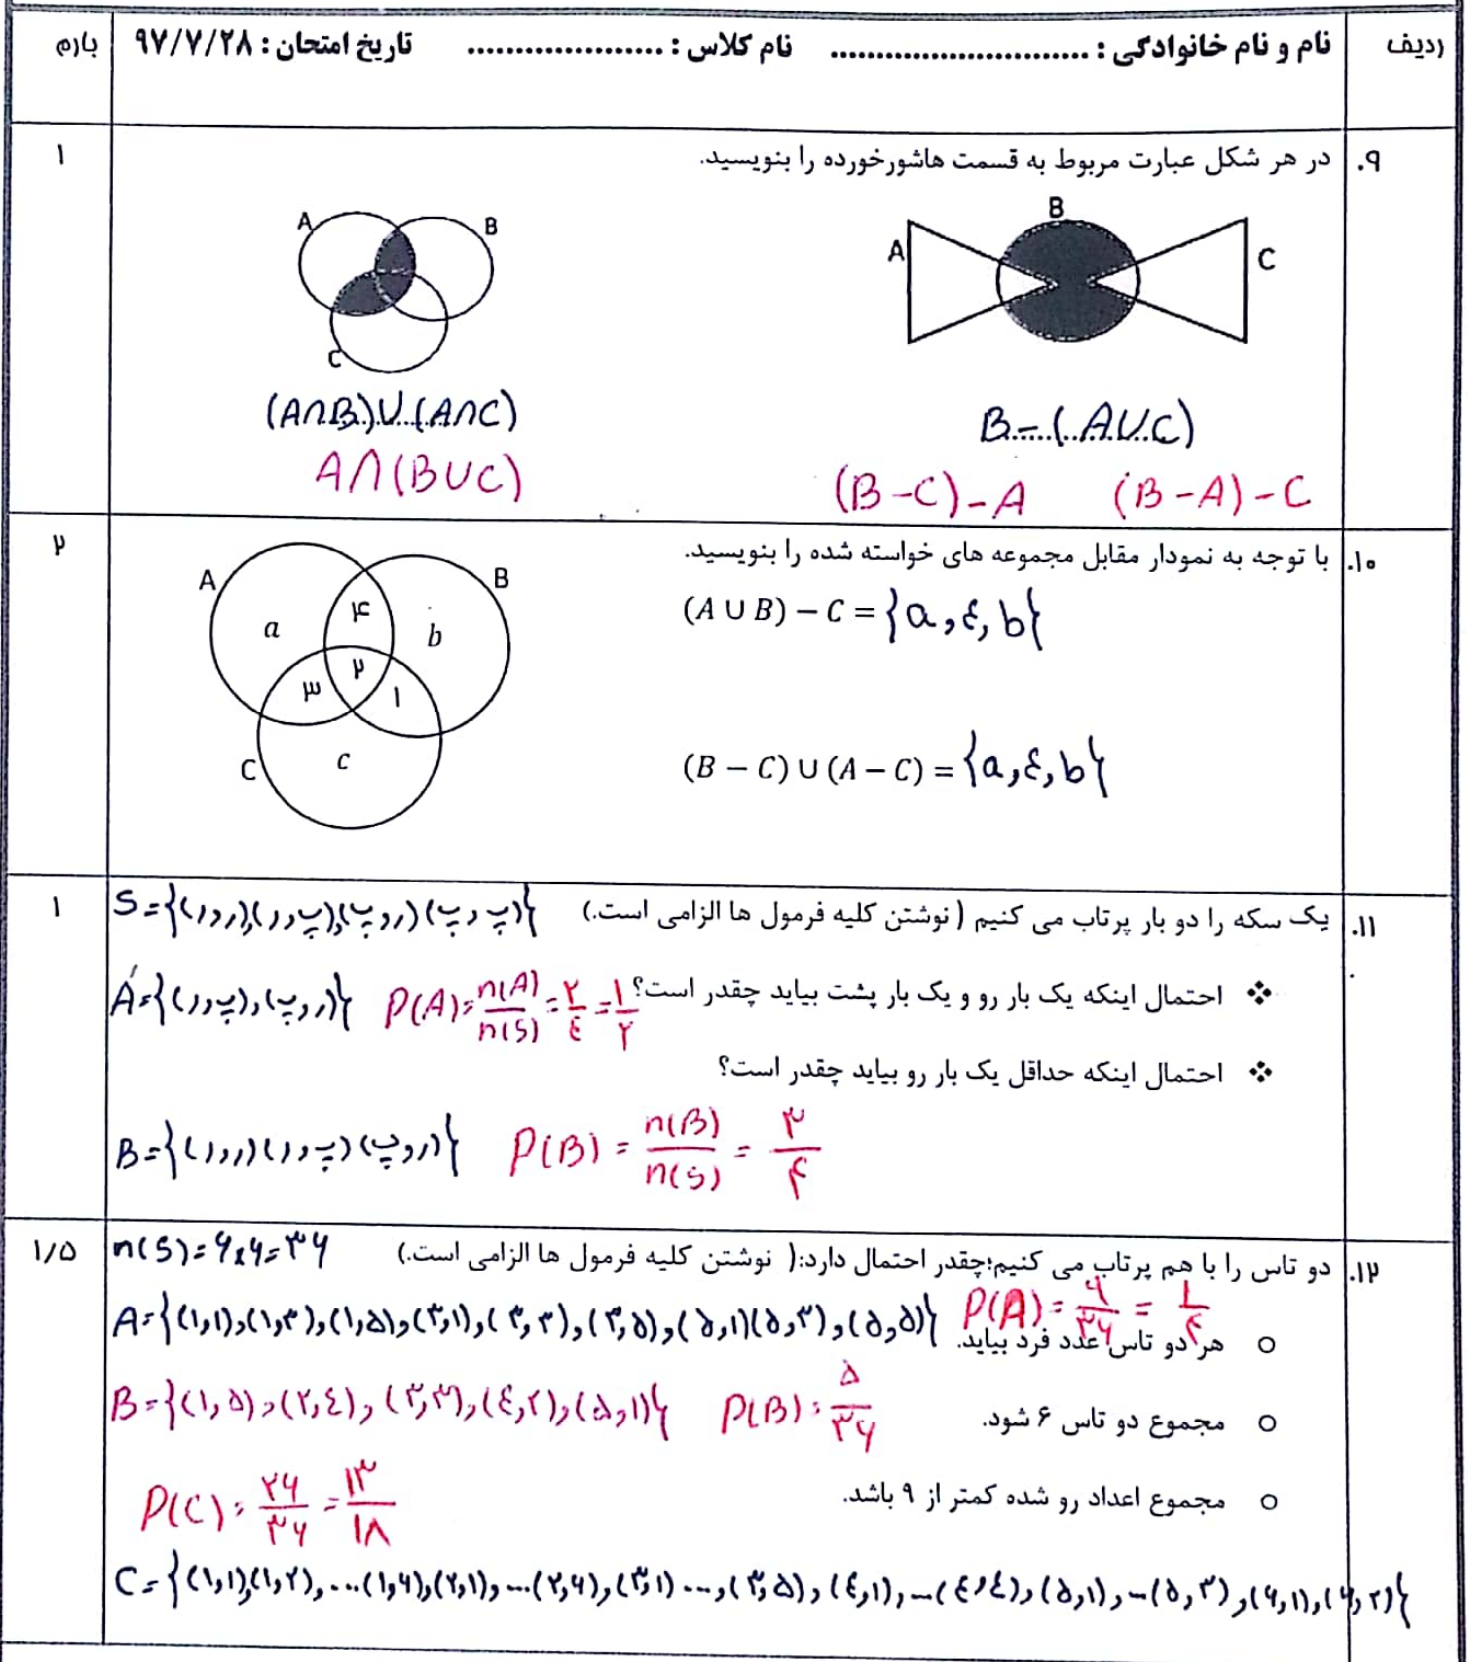 ردیف نام و نام خانوادگی : ............................. نام کلاس : ..................... تاریخ امتحان : ۹۷/۷/۲۸ بارم
۹. در هر شکل عبارت مربوط به قسمت هاشورخورده را بنویسید. ۱
A B C
A B C
B - (A∪C)
(B-C)-A (B-A)-C
(A∩B)∪(A∩C)
A∩(B∪C)
۱۰. با توجه به نمودار مقابل مجموعه های خواسته شده را بنویسید. ۲
(A ∪ B) − C = {a,٤,b}
(B − C) ∪ (A − C) = {a,٤,b}
A B
a ۴ b
۳ ۲ ۱
C c
۱۱. یک سکه را دو بار پرتاب می کنیم ( نوشتن کلیه فرمول ها الزامی است.) ۱
S={(ر,ر),(پ,ر),(ر,پ),(پ,پ)}
❖ احتمال اینکه یک بار رو و یک بار پشت بیاید چقدر است؟
A={(ر,پ),(پ,ر)} P(A)=n(A)/n(S)=۲/٤=۱/۲
❖ احتمال اینکه حداقل یک بار رو بیاید چقدر است؟
B={(ر,ر)(پ,ر)(ر,پ)} P(B)=n(B)/n(S)=۳/۴
۱۲. دو تاس را با هم پرتاب می کنیم؛چقدر احتمال دارد:( نوشتن کلیه فرمول ها الزامی است.) ۱/۵
n(S)=۶×۶=۳۶
○ هر دو تاس عدد فرد بیاید.
A={(۱,۱),(۱,۳),(۱,۵),(۳,۱),(۳,۳),(۳,۵),(۵,۱)(۵,۳),(۵,۵)} P(A)=۹/۳۶=۱/۴
○ مجموع دو تاس ۶ شود.
B={(۱,۵),(۲,٤),(۳,۳),(٤,۲),(۵,۱)} P(B)=۵/۳۶
○ مجموع اعداد رو شده کمتر از ۹ باشد.
P(C)=۲۶/۳۶=۱۳/۱۸
C={(۱,۱),(۱,۲),...(۱,۶),(۲,۱),...(۲,۶),(۳,۱)...,(۳,۵),(٤,۱),...(٤,٤),(۵,۱),...(۵,۳),(۶,۱),(۶,۲)}